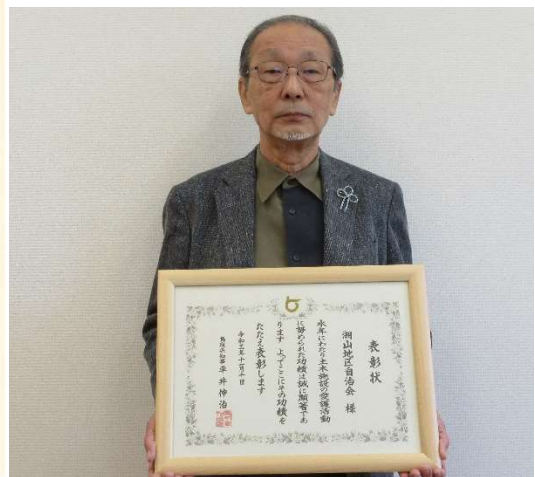 表彰状
湖山地区自治会 様
永年にわたり土木施設の愛護活動
に努められた功績は誠に顕著であ
ります よってここにその功績を
たたえ表彰します
鳥取県知事 平井伸治